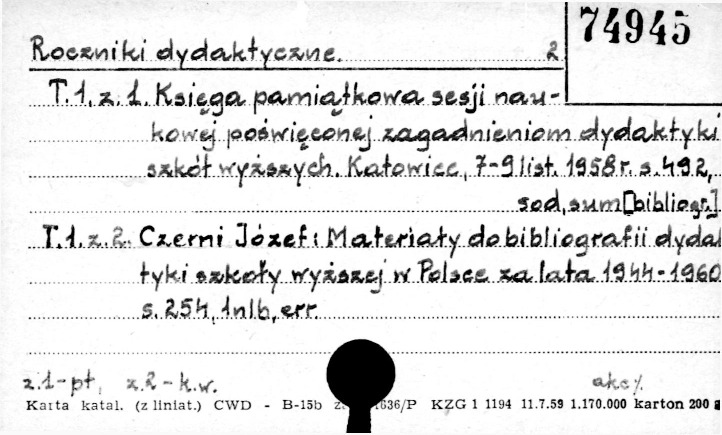 74945
Roczniki dydaktyczne. 2
T.1, z.1. Księga pamiątkowa sesji nau-
kowej poświęconej zagadnieniom dydaktyki
szkół wyższych. Katowice, 7-9 list. 1958 r. s. 492,
sod, sum [bibliogr.]
T.1. z.2. Czerni Józef: Materiały do bibliografii dydak
tyki szkoły wyższej w Polsce za lata 1944-1960
s. 254, 1nlb, err.
z.1-pł, z.2-k.w. akc
Karta katal. (z liniat.) CWD - B-15b z. 1636/P KZG 1 1194 11.7.59 1.170.000 karton 200 g